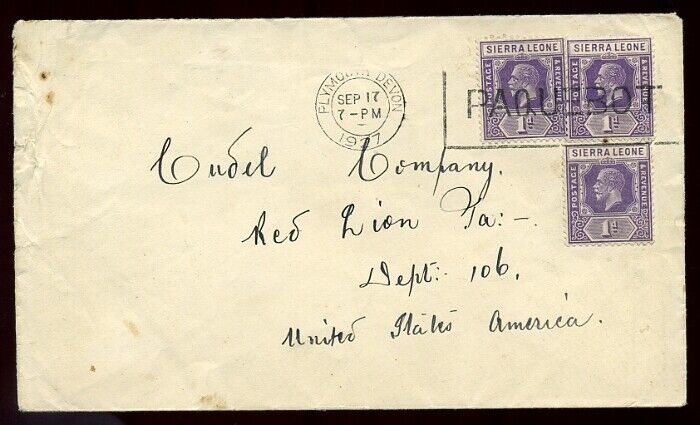 SIERRA LEONE SIERRA LEONE
POSTAGE & REVENUE POSTAGE & REVENUE
1d 1d
PLYMOUTH DEVON
SEP 17
7-PM
1927
PAQUEBOT
SIERRA LEONE
POSTAGE & REVENUE
1d
Cudel Company,
Red Lion Pa:-
Dept: 106,
United States America.